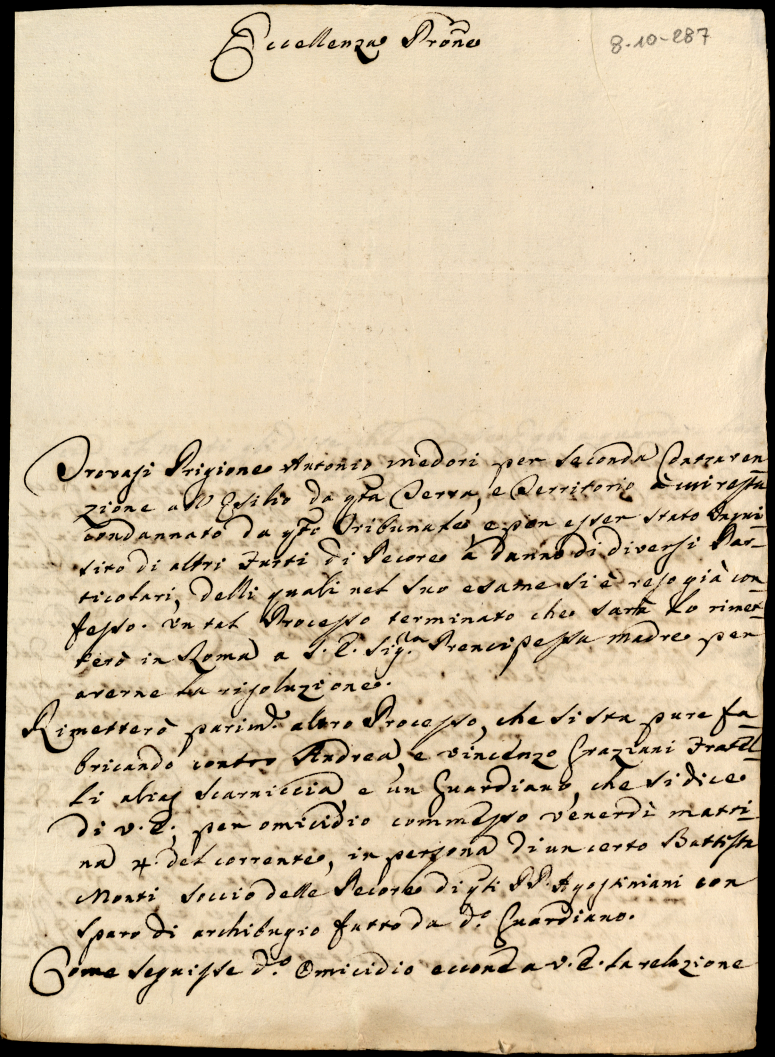 Eccellenza Prone
8-10-287
Trovasi Prigione Antonio Medori per seconda Contraven
zione all'Esilio da qta Terra, e Territorio à cui resta
condannato da qto Tribunale, e per esser stato Inqui-
sito di altri Furti di Pecore à danno di diversi Par-
ticolari, delli quali nel suo esame si è reso già con
fesso. Un tal Processo terminato che sarà lo rimet-
terò in Roma a S. E. Sig.ra Prencipessa Madre per
averne la risoluzione.
Rimetterò parimte altro Processo, che si sta pure fa-
bricando contro Andrea, e Vincenzo Graziani Fratel-
li alias Scarniccia e un Guardiano, che si dice
di V. E., per omicidio commesso Venerdì matti-
na 4. del corrente, in persona di un certo Battista
Monti Soccio delle Pecore di qti PP. Agostiniani con
sparo di archibugio fatto da do Guardiano.
Come seguisse do Omicidio eccone a V. E. la relazione